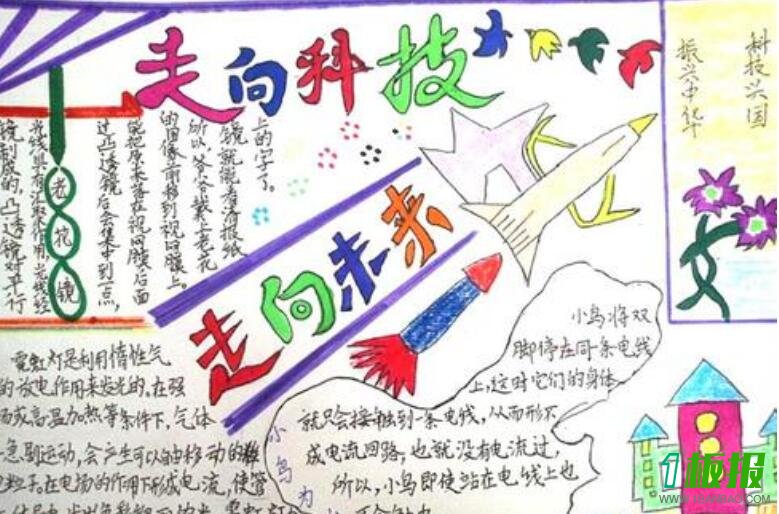 走向科技
走向未来
科技兴国
振兴中华
老花镜
镜制成的,凸透镜对平行
光线具有汇聚作用,光线经
过凸透镜后会集中到一点,
能把原来落在视网膜后面
的图像前移到视网膜上。
所以,爷爷戴上老花
镜就能看清报纸
上的字了。
霓虹灯是利用惰性气
的放电作用来发光的。在强
场或高温加热等条件下,气体
急剧运动,会产生可以自由移动的
粒子。在电场的作用下形成电流,使管
小鸟为
小鸟将双
脚停在同一条电线
上,这时它们的身体
就只会接触到一条电线,从而形不
成电流回路,也就没有电流过,
所以,小鸟即使站在电线上也
1板报